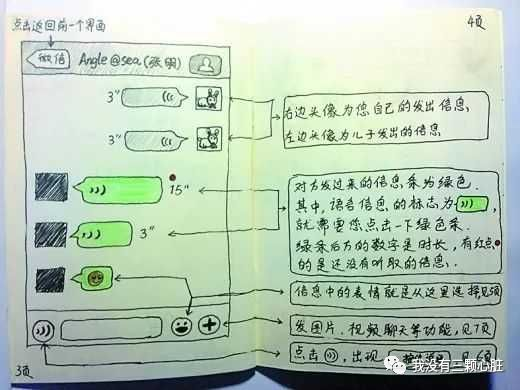 点击返回前一个界面
微信
Angle@sea(张明)
3"
3"
15"
3"
3页
4页
右边头像为您自己的发出信息
左边头像为儿子发出的信息
对方发过来的信息条为绿色.
其中,语音信息的标志为
就需要您点击一下绿色条.
绿条后方的数字是时长,有红点
的是还没有听取的信息.
信息中的表情就是从这里选择见5页
发图片.视频聊天等功能,见7页
点击 ,出现
见6页
我没有三颗心脏